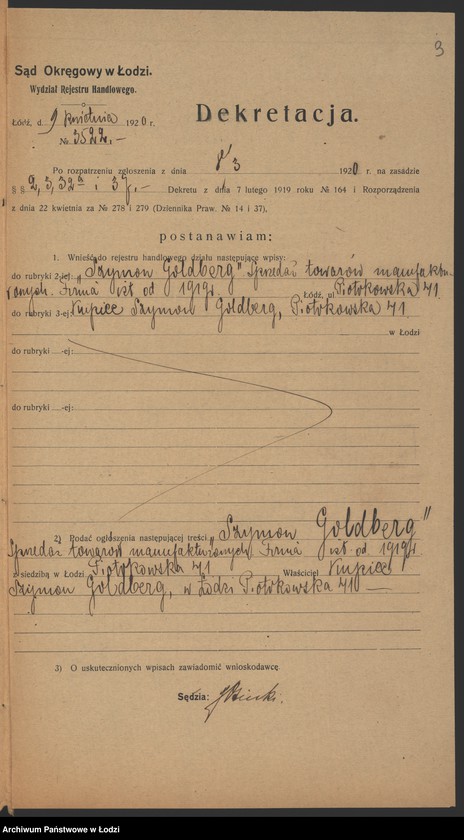 3
Sąd Okręgowy w Łodzi.
Wydział Rejestru Handlowego.
Łódź, d. 9 kwietnia 1920 r.
№ 3522.-
Dekretacja.
Po rozpatrzeniu zgłoszenia z dnia 3 1920 r. na zasadzie
§ § 2, 3, 32a i 37.- Dekretu z dnia 7 lutego 1919 roku № 164 i Rozporządzenia
z dnia 22 kwietnia za № 278 i 279 (Dziennika Praw. № 14 i 37),
postanawiam:
1. Wnieść do rejestru handlowego działu następujące wpisy:
do rubryki 2-iej: „Szymon Goldberg" Sprzedaż towarów manufaktu-
rowych. Firma ist. od 1919 r. Łódź, ul. Piotrkowska 71.
do rubryki 3-ej Kupiec Szymon Goldberg, Piotrkowska 71.
w Łodzi
do rubryki -ej:
do rubryki -ej:
2) Podać ogłoszenia następującej treści „Szymon Goldberg"
Sprzedaż towarów manufakturowych Firma ist. od 1919 r.
z siedzibą w Łodzi Piotrkowska 71 Właściciel Kupiec
Szymon Goldberg, w Łodzi Piotrkowska 71 —
3) O uskutecznionych wpisach zawiadomić wnioskodawcę.
Sędzia:
Archiwum Państwowe w Łodzi